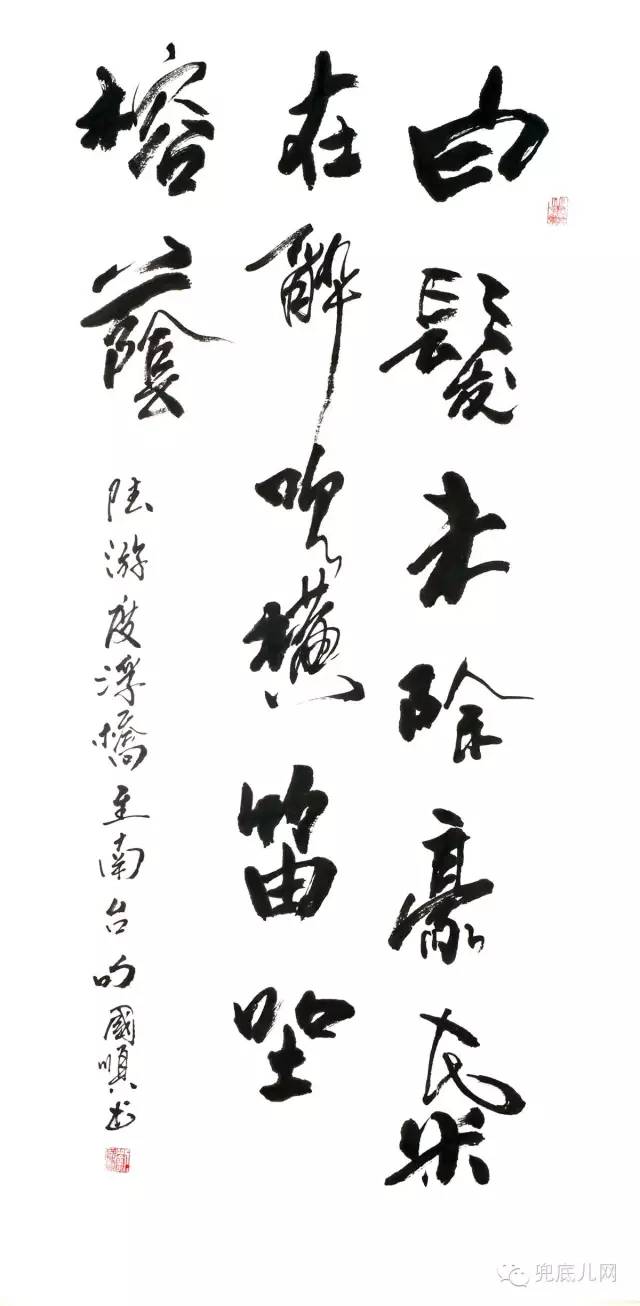 白髮未除豪氣
在醉吹橫笛坐
榕蔭
陸游度浮橋至南台句國順书
兜底儿网